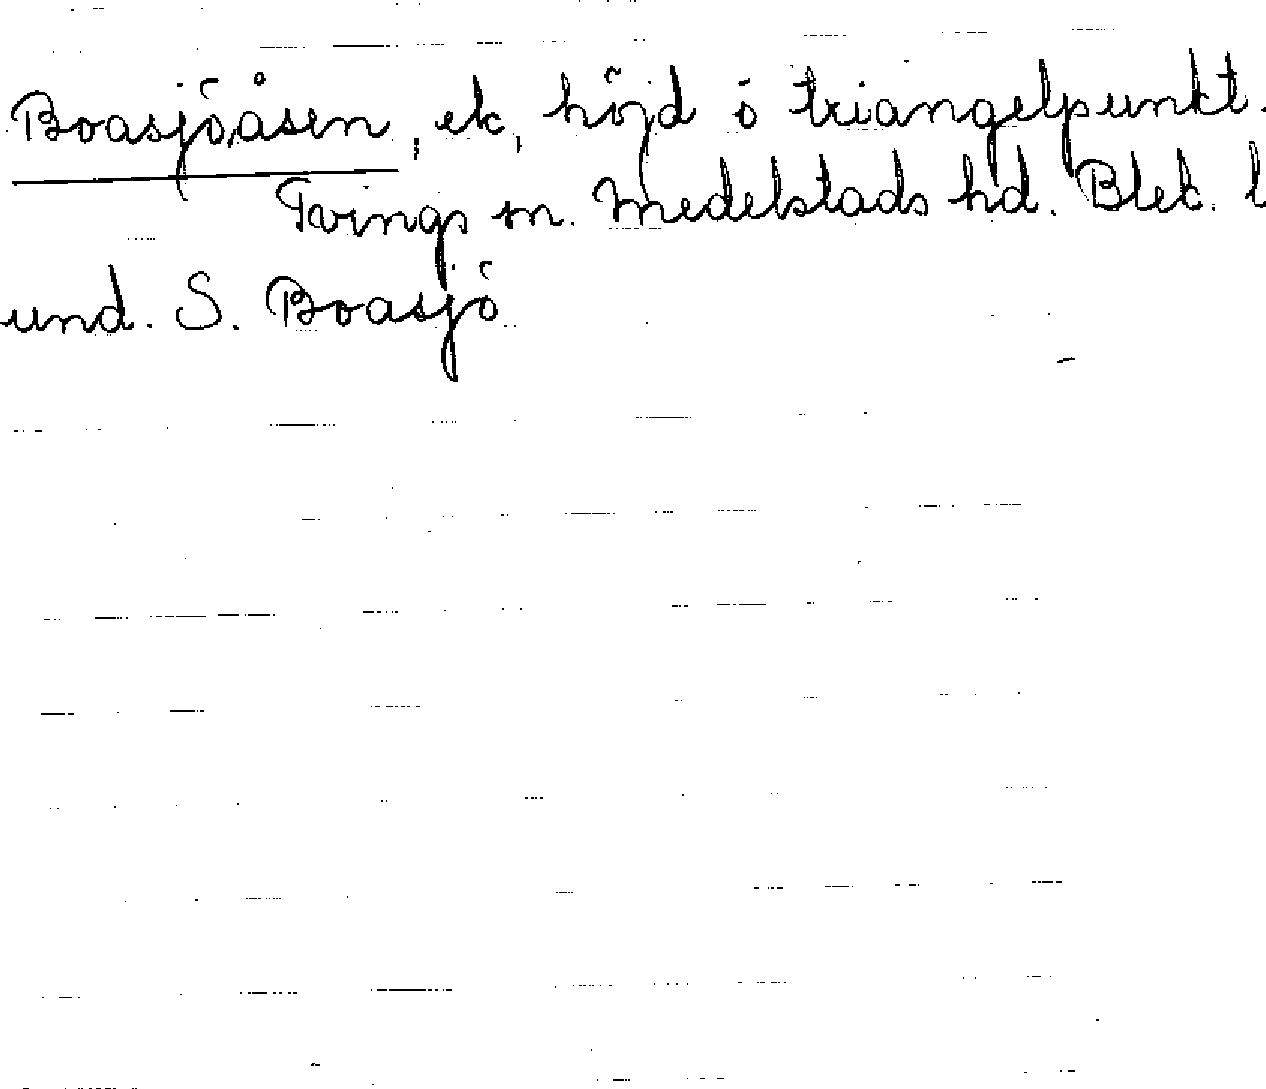 Boasjöåsen, ek, höjd o triangelpunkt.
Tvings sn. Medelstads hd. Blek. l
und. S. Boasjö